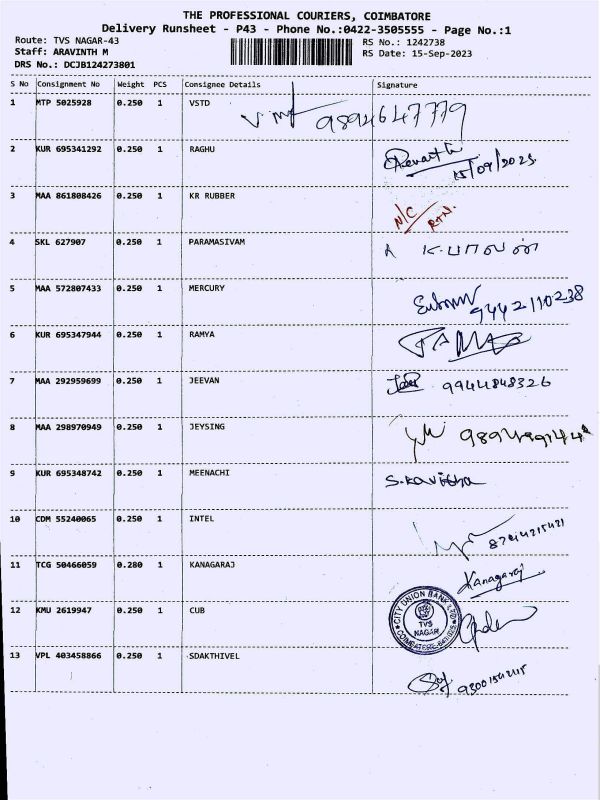 THE PROFESSIONAL COURIERS, COIMBATORE
Delivery Runsheet - P43 - Phone No.:0422-3505555 - Page No.:1
Route: TVS NAGAR-43 RS No.: 1242738
Staff: ARAVINTH M RS Date: 15-Sep-2023
DRS No.: DCJB124273801
S No Consignment No Weight PCS Consignee Details Signature
1 MTP 5025928 0.250 1 VSTD 9894647779
2 KUR 695341292 0.250 1 RAGHU Revathi
15/09/2023.
3 MAA 861808426 0.250 1 KR RUBBER N/C
RTN.
4 SKL 627907 0.250 1 PARAMASIVAM K.பாலன்
5 MAA 572807433 0.250 1 MERCURY 9442110238
6 KUR 695347944 0.250 1 RAMYA
7 MAA 292959699 0.250 1 JEEVAN 9944848326
8 MAA 298970949 0.250 1 JEYSING
9 KUR 695348742 0.250 1 MEENACHI S.Kavitha
10 CDM 55240065 0.250 1 INTEL
11 TCG 50466059 0.280 1 KANAGARAJ Kanagaraj
12 KMU 2619947 0.250 1 CUB CITY UNION BANK LTD
TVS
NAGAR
13 VPL 403458866 0.250 1 SDAKTHIVEL